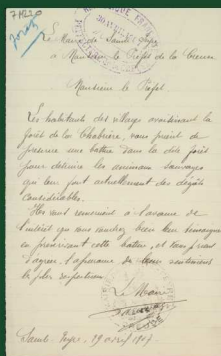 71220
Le Maire de Sainte Feyre
à Monsieur le Préfet de la Creuse
Monsieur le Préfet
Les habitants des villages avoisinant la
forêt de la Chabrière, vous prient de
prescrire une battue dans la dite forêt
pour détruire les animaux sauvages
qui leur font actuellement des dégâts
considérables.
Ils vous remercient à l'avance de
l'intérêt que vous voudrez bien leur témoigner
en prescrivant cette battue, et vous prient
d'agréer l'assurance de leurs sentiments
les plus respectueux.
Le Maire
Sainte Feyre, 19 1907